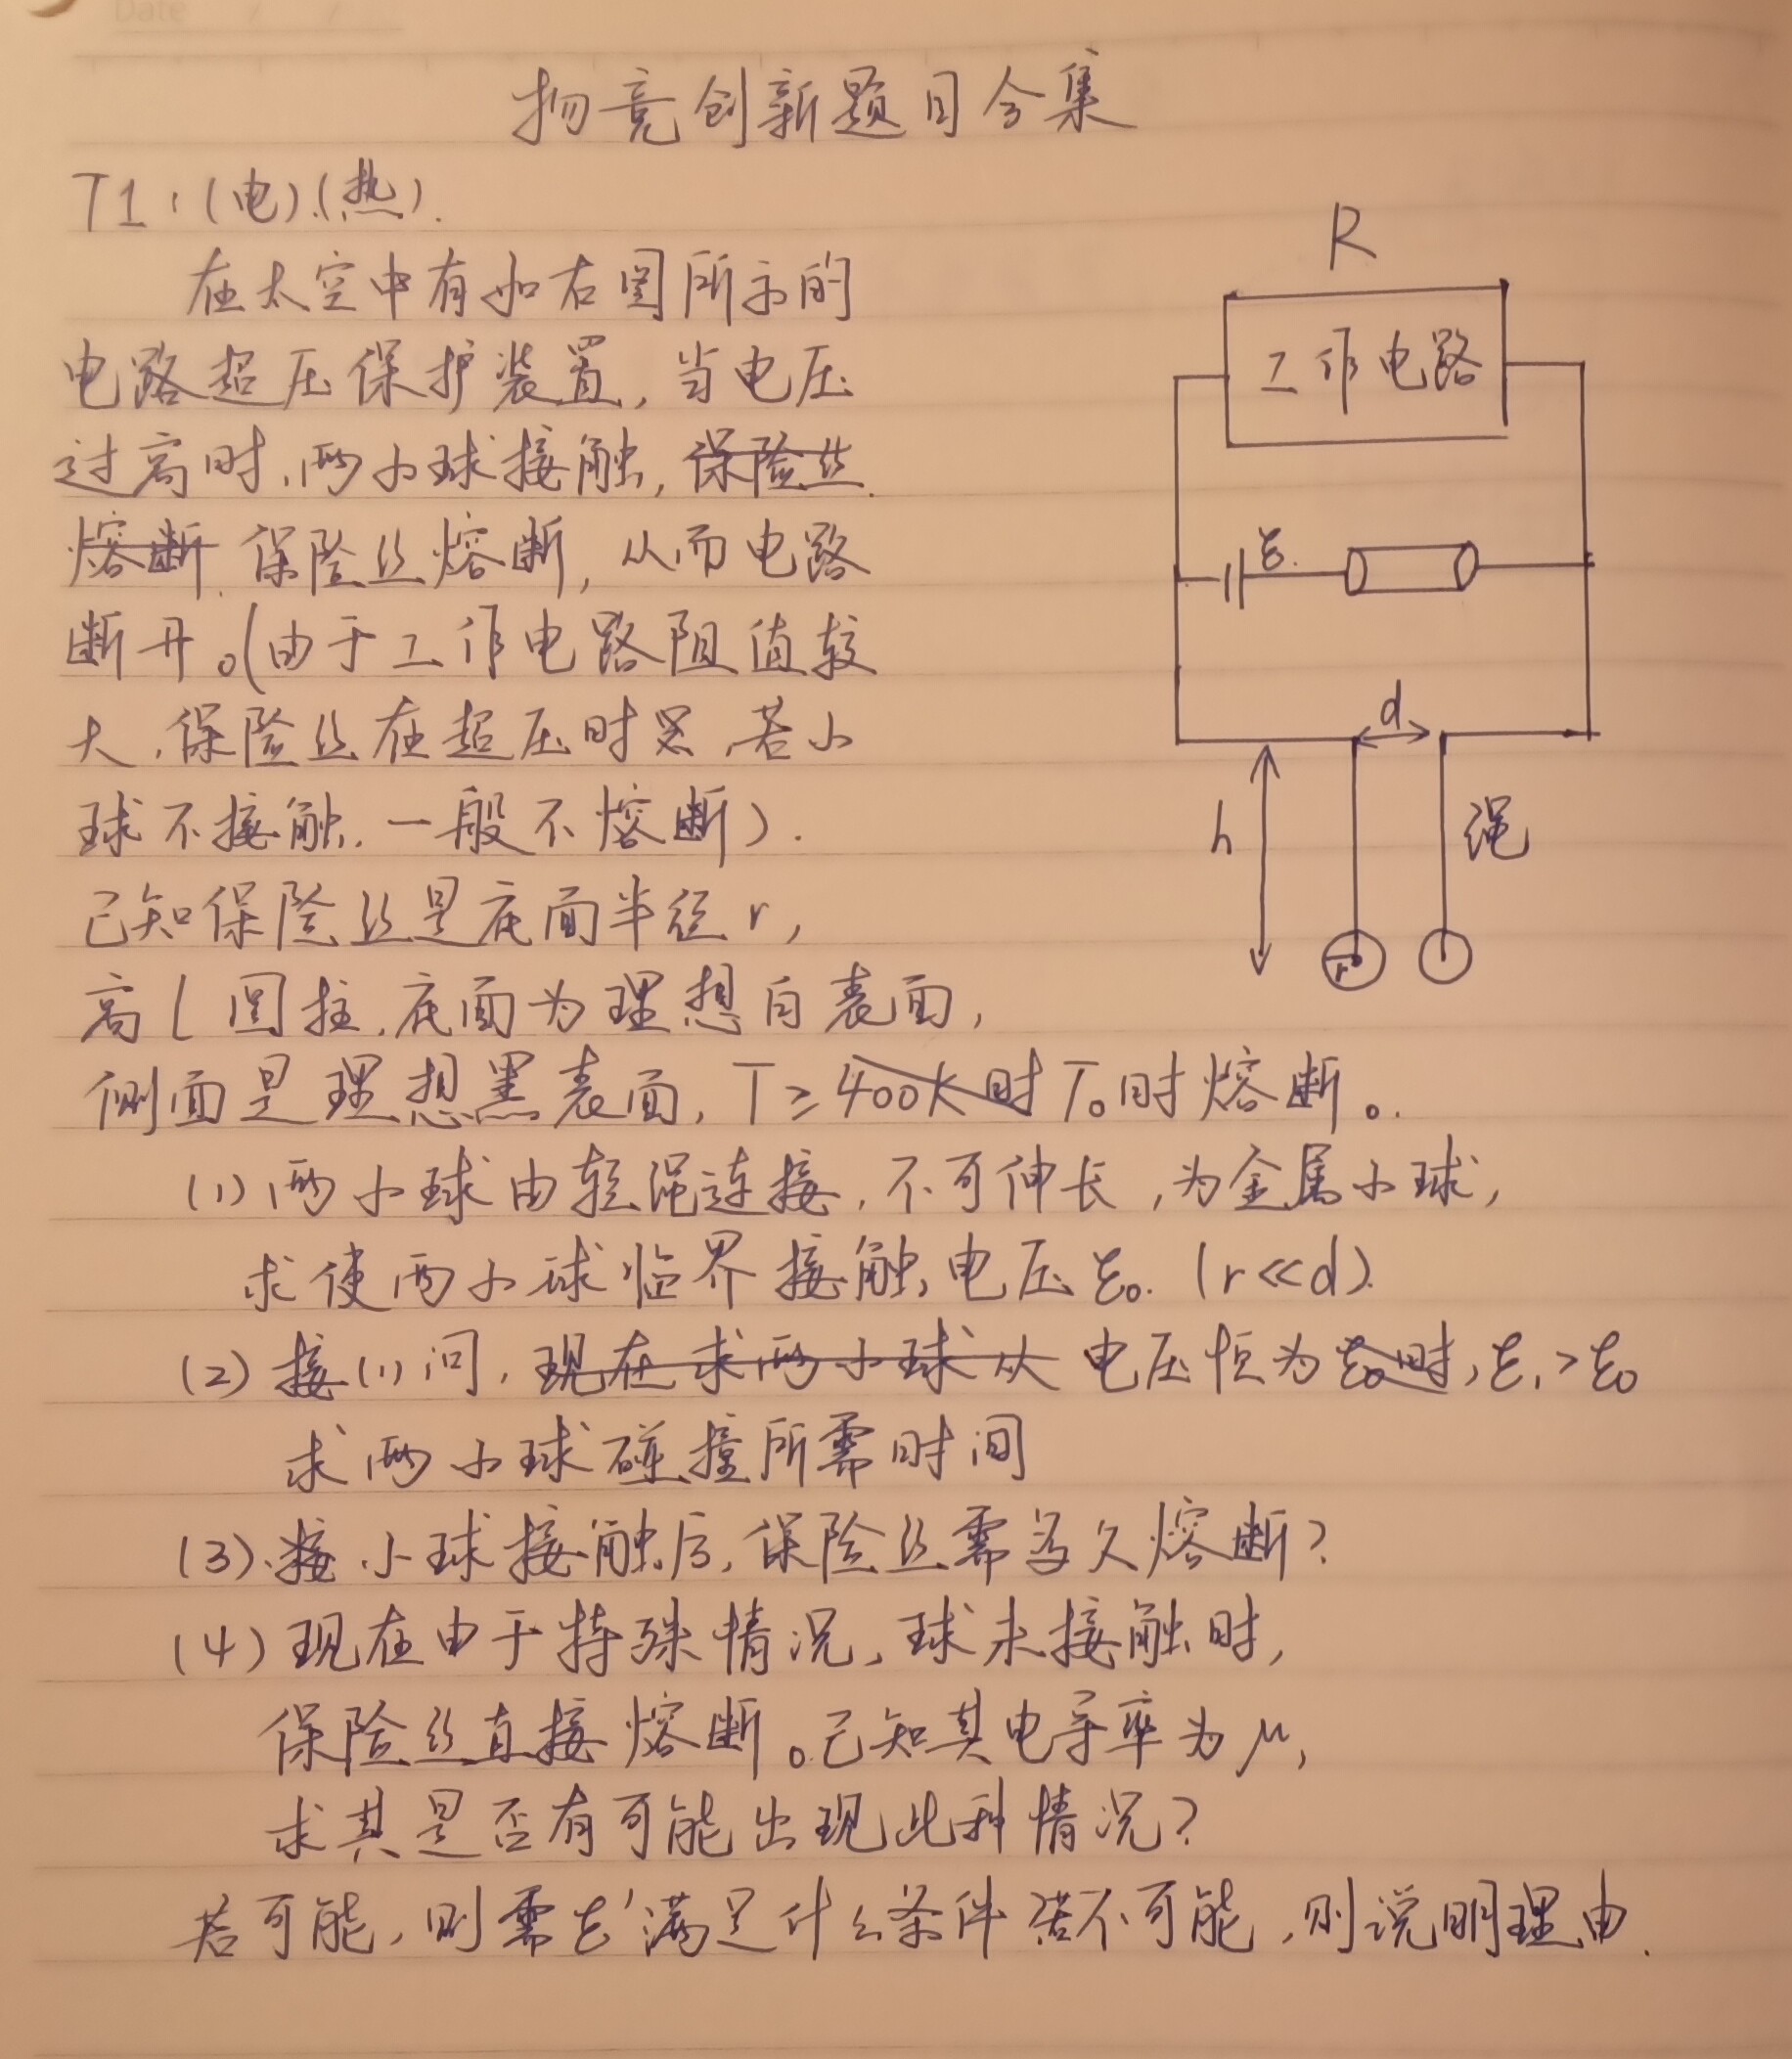 Date / /
物竞创新题目合集
T1:(电).(热).
在太空中有如右图所示的
电路超压保护装置,当电压
过高时,两小球接触,保险丝
熔断.保险丝熔断,从而电路
断开。(由于工作电路阻值较
大,保险丝在超压时,若小
球不接触,一般不熔断).
已知保险丝是底面半径r,
高l圆柱,底面为理想白表面,
侧面是理想黑表面,T≥400K时T₀时熔断。
(1)两小球由轻绳连接,不可伸长,为金属小球,
求使两小球临界接触电压ε₀.(r≪d).
(2)接(1)问,现在求两小球从电压恒为ε₀时,ε₁>ε₀
求两小球碰撞所需时间
(3).接小球接触后,保险丝需多久熔断?
(4)现在由于特殊情况,球未接触时,
保险丝直接熔断。已知其电导率为μ,
求其是否有可能出现此种情况?
若可能,则需ε'满足什么条件若不可能,则说明理由.
R
工作电路
ε.
d
h
绳
r